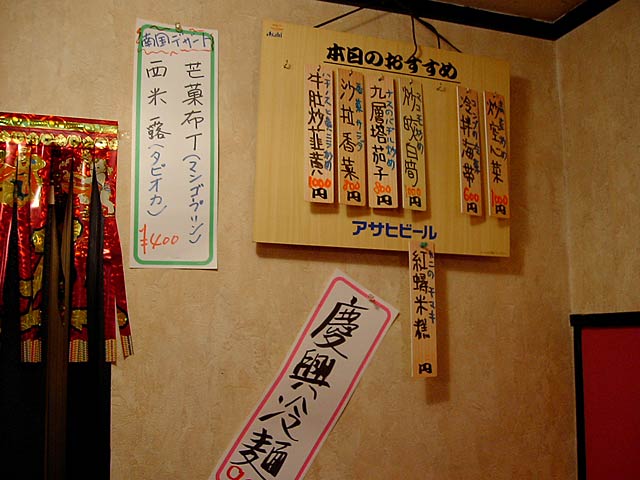 南国デザート
芒菓布丁(マンゴプリン)
西米露(タピオカ)
¥400
Asahi
本日のおすすめ
炒空心菜
1000円
冷拌海帯
600円
白筒
円
ナスのバジル炒め
九層塔茄子
800円
香菜サラダ
沙拉香菜
800円
牛肚炒韮黄
1000円
アサヒビール
カニのチマキ
紅蟳米糕
円
慶興冷麺